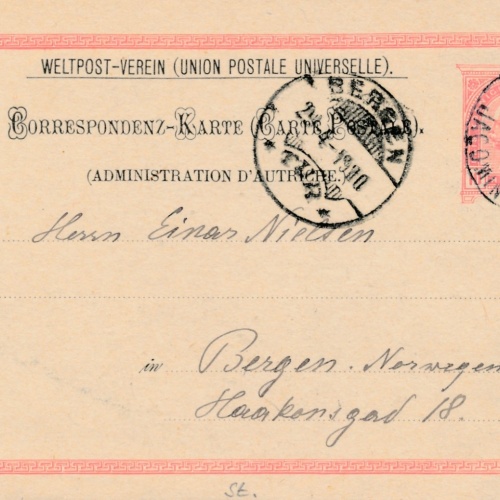 WELTPOST-VEREIN (UNION POSTALE UNIVERSELLE).
CORRESPONDENZ-KARTE (CARTE POSTALE).
(ADMINISTRATION D'AUTRICHE.)
BERGEN
TUR
Herrn Einar Nielsen
in Bergen. Norwegen
Haakonsgad 18.
St.